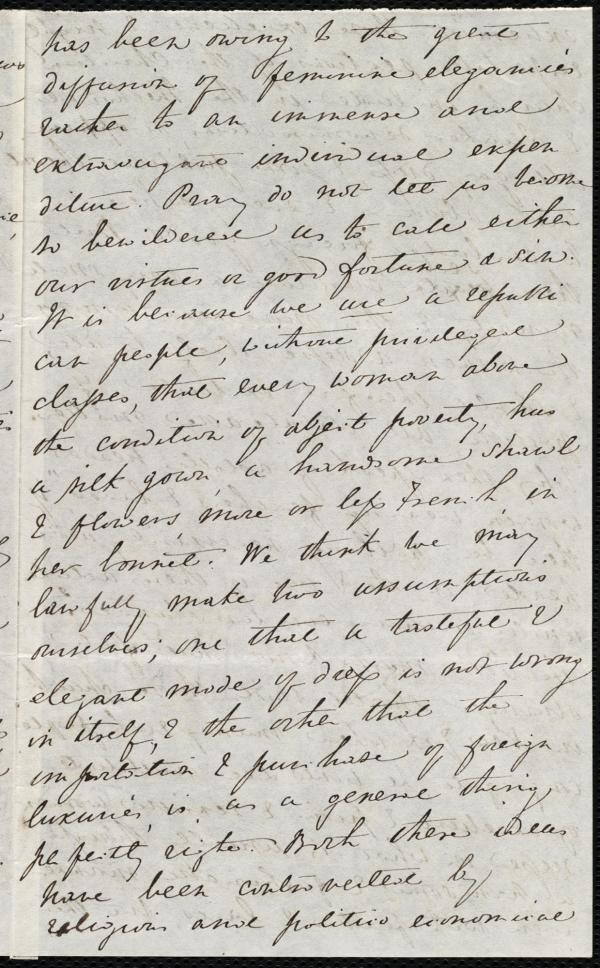 has been owing to the great
diffusion of feminine elegancies
rather to an immense and
extravagant individual expen
diture. Pray do not let us become
so bewildered as to call either
our virtues or good fortune a sin.
It is because we are a republi
can people, without privileged
classes, that every woman above
the condition of abject poverty, has
a silk gown, a handsome shawl
& flowers, more or less French, in
her bonnet. We think we may
lawfully make two assumptions
ourselves; one that a tasteful &
elegant mode of dress is not wrong
in itself, & the other that the
importation & purchase of foreign
luxuries, is, as a general thing,
perfectly right. Both these ideas
have been controverted by
religious and politico economical